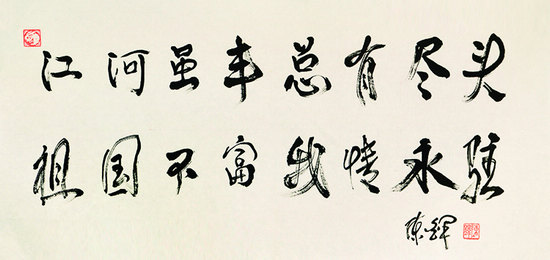 江河虽丰总有尽头
祖国不富我情永驻
陈辉